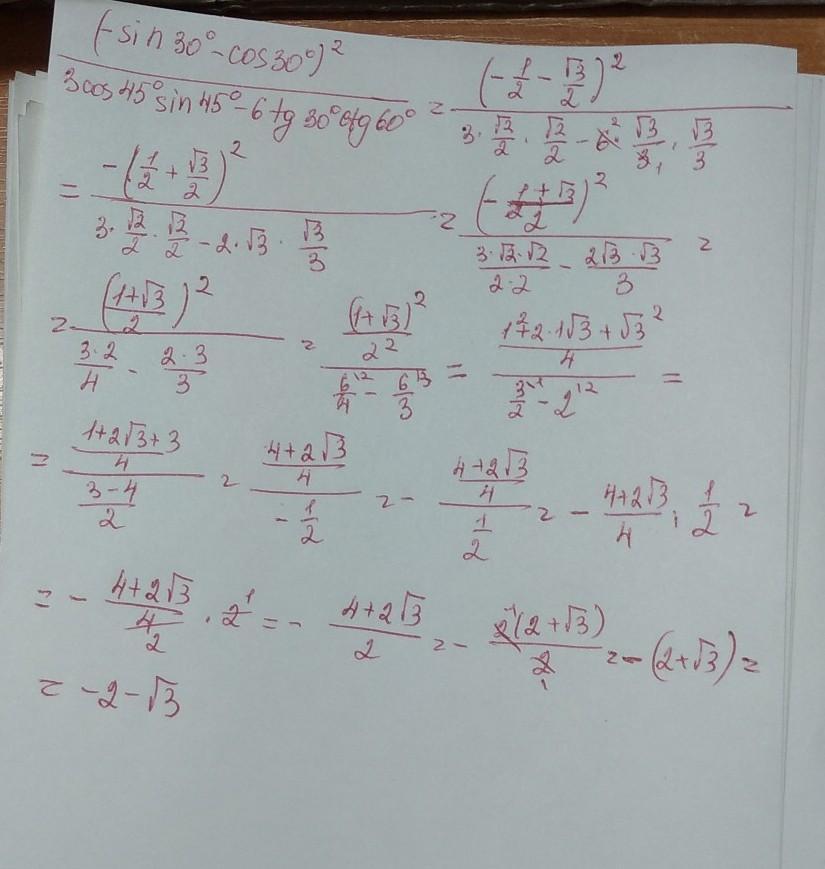 (-sin 30° - cos 30°)² / (3cos 45° sin 45° - 6 tg 30° ctg 60°) = (-1/2 - √3/2)² / (3 · √2/2 · √2/2 - 6² · √3/3₁ · √3/3)
= -(1/2 + √3/2)² / (3 · √2/2 · √2/2 - 2 · √3 · √3/3) = (-(1+√3)/2)² / (3·√2·√2/2·2 - 2√3·√3/3) =
= ((1+√3)/2)² / (3·2/4 - 2·3/3) = (1+√3)²/2² / (6/4 - 6/3) = (1²+2·1√3 + √3²)/4 / (3/2 - 2) =
= (1+2√3+3)/4 / (3-4)/2 = (4+2√3)/4 / -1/2 = - (4+2√3)/4 / 1/2 = - (4+2√3)/4 : 1/2 =
= - (4+2√3)/4 2 · 2¹ = - (4+2√3)/2 = - 2¹(2+√3)/2₁ = - (2+√3) =
= -2-√3